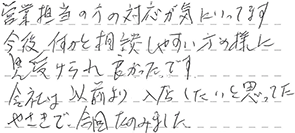 営業担当の方の対応が気にいってます
今後、何かと相談しやすい方の様に
見受けられ良かったです。
会社は以前より入店したいと思ってた
やさきで、今回たのみました。